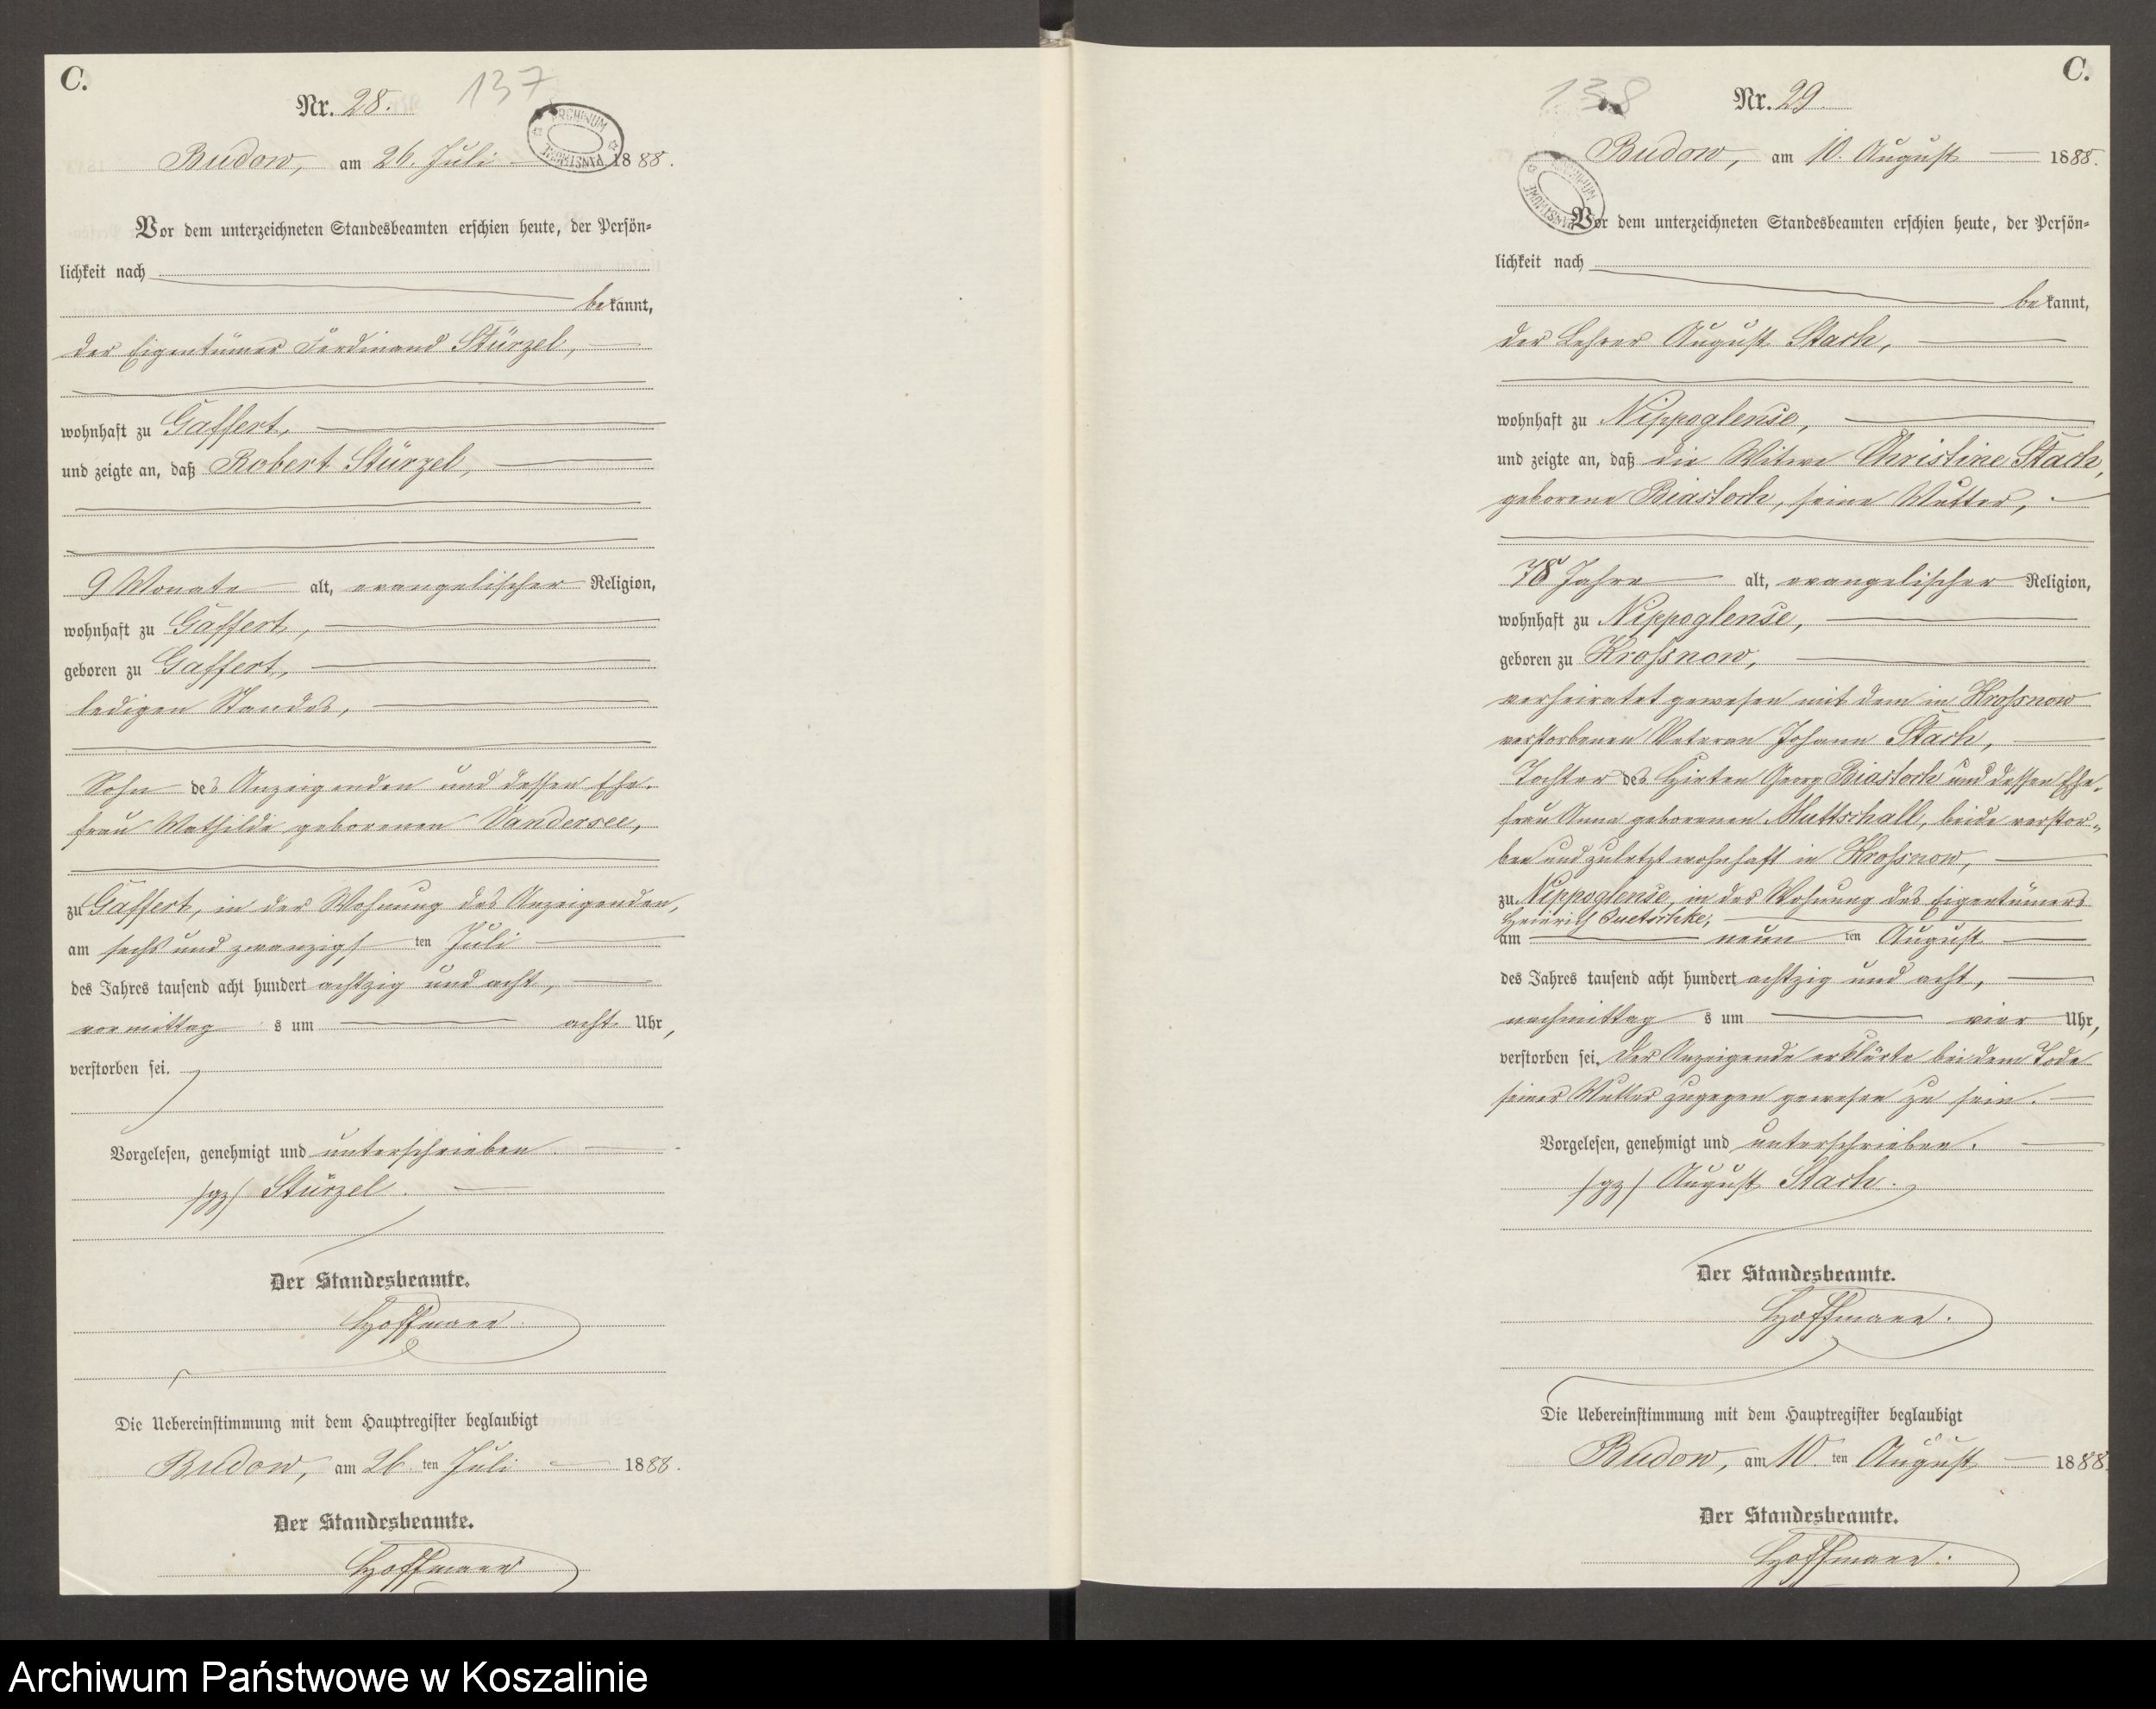 C.
137
Nr. 28.
ARCHIWUM PAŃSTWOWE
Budow, am 26. Juli 1888.
Vor dem unterzeichneten Standesbeamten erschien heute, der Persön-
lichkeit nach
bekannt,
der Eigentümer Ferdinand Stürzel,
wohnhaft zu Gaffert,
und zeigte an, daß Robert Stürzel,
9 Monate alt, evangelischer Religion,
wohnhaft zu Gaffert,
geboren zu Gaffert,
ledigen Standes,
Sohn des Anzeigenden und dessen Ehe-
frau Mathilde geborenen Vandersee,
zu Gaffert, in der Wohnung des Anzeigenden,
am sechs und zwanzigsten Juli
des Jahres tausend acht hundert achtzig und acht,
vormittags um acht Uhr,
verstorben sei.
Vorgelesen, genehmigt und unterschrieben.
/gz/ Stürzel.
Der Standesbeamte.
Hoffmann
Die Uebereinstimmung mit dem Hauptregister beglaubigt
Budow, am 26ten Juli 1888.
Der Standesbeamte.
Hoffmann
C.
138
Nr. 29.
ARCHIWUM PAŃSTWOWE
Budow, am 10. August 1888.
Vor dem unterzeichneten Standesbeamten erschien heute, der Persön-
lichkeit nach
bekannt,
der Lehrer August Stach,
wohnhaft zu Nippoglense,
und zeigte an, daß die Witwe Christine Stach,
geborene Biastoch, seine Mutter,
78 Jahre alt, evangelischer Religion,
wohnhaft zu Nippoglense,
geboren zu Krossnow,
verheiratet gewesen mit dem in Krossnow
verstorbenen Veteran Johann Stach,
Tochter des Hirten Georg Biastoch und dessen Ehe-
frau Anna geborenen Muttschall, beide verstor-
ben und zuletzt wohnhaft in Krossnow,
zu Nippoglense, in der Wohnung des Eigentümers
Heinrich Quetschke,
am neunten August
des Jahres tausend acht hundert achtzig und acht,
nachmittags um vier Uhr,
verstorben sei. Der Anzeigende erklärte bei dem Tode
seiner Mutter zugegen gewesen zu sein.
Vorgelesen, genehmigt und unterschrieben.
/gz/ August Stach.
Der Standesbeamte.
Hoffmann.
Die Uebereinstimmung mit dem Hauptregister beglaubigt
Budow, am 10.ten August 1888.
Der Standesbeamte.
Hoffmann.
Archiwum Państwowe w Koszalinie